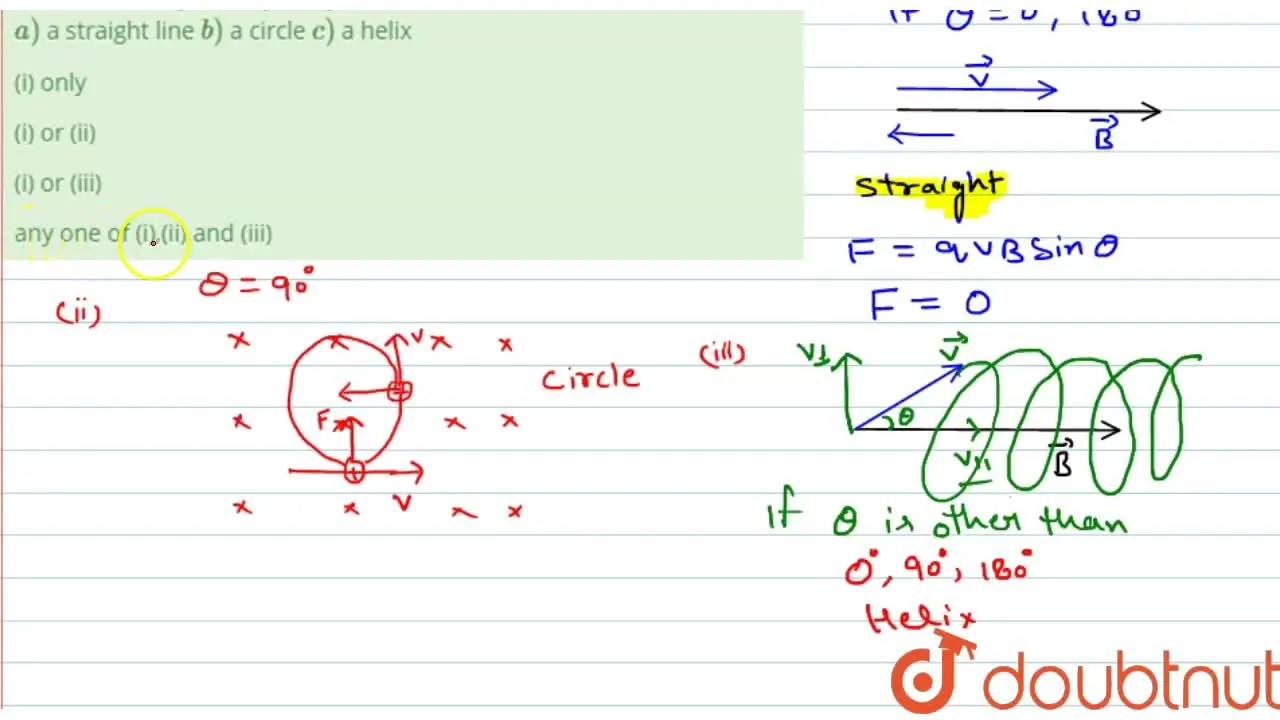 a) a straight line b) a circle c) a helix
(i) only
(i) or (ii)
(i) or (iii)
any one of (i),(ii) and (iii)
If θ = 0, 180°
V
B
straight
F = qVB Sin θ
F = 0
(ii)
θ = 90°
x x V x x
Circle
x F x x x
V
x x x x
(iii)
V⊥ V
θ
V11
B
If θ is other than
0°, 90°, 180°
Helix
doubtnut